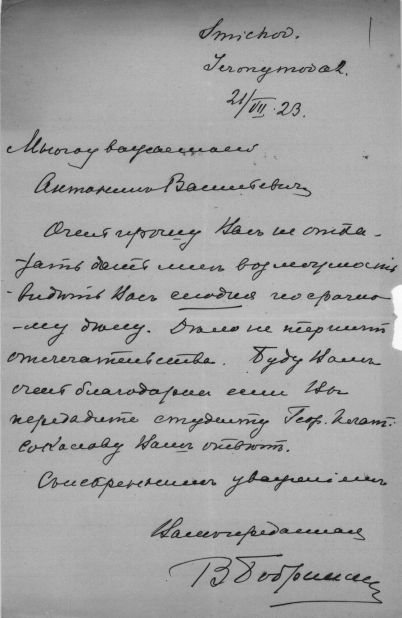 Smichov.
Jeronymova 2.
21/VII 23.
Многоуважаемый
Антонин Васильевич
Очень прошу Васъ не отка-
зать дать мнѣ возможность
видѣть Васъ сегодня по срочно-
му дѣлу. Дѣло не терпитъ
отлагательства. Буду Вамъ
очень благодарна если Вы
передадите студенту Геор. Игнат.
Соколову Вашъ отвѣтъ.
Съ искреннимъ уваженiемъ
В Бобринск